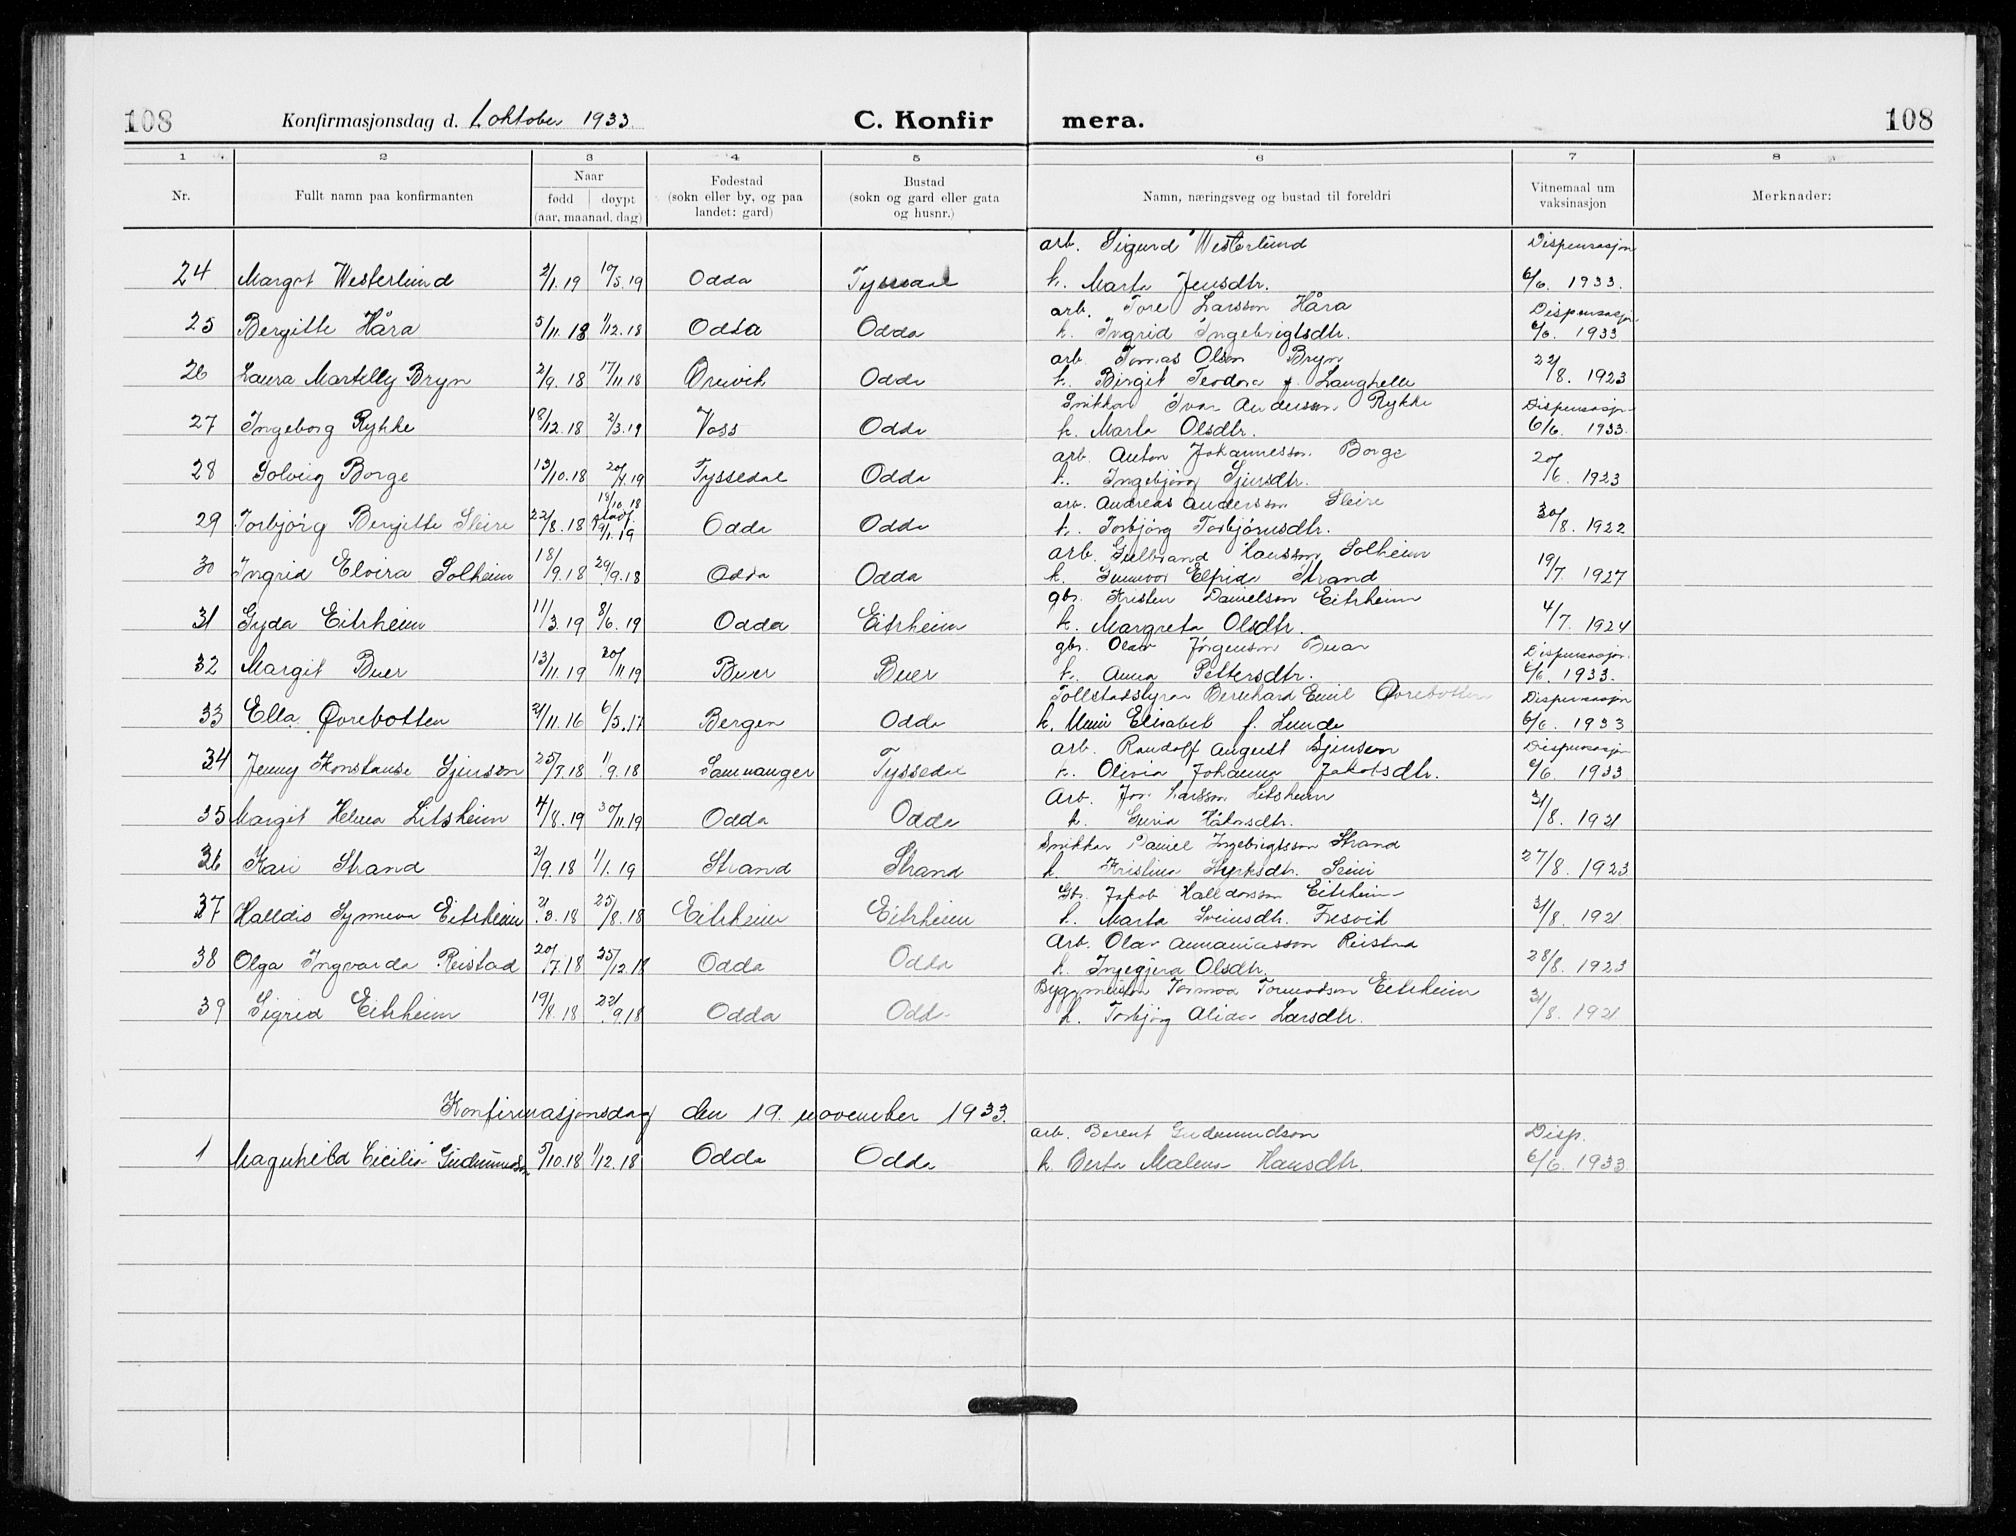 108 Konfirmasjonsdag d. 1 oktober 1933 C. Konfirmera. 108
1 2 3 4 5 6 7 8
Nr. Fullt namn paa konfirmanten Naar fødd døypt (aar, maanad, dag) Fødestad (sokn eller by, og paa landet: gard) Bustad (sokn og gard eller gata og husnr.) Namn, næringsveg og bustad til foreldri Vitnemaal um vaksinasjon Merknader:
arb. Sigurd Westerlund Dispensasjon
24 Margot Westerlund 3/1.19 10/5.19 Odda Tyssedal k. Marta Jensdtr. 6/6. 1933.
arb. Tore Larsson Håra Dispensasjon
25 Bergitte Håra 5/11.18 1/12.18 Odda Odda k. Ingrid Ingebrigtsdtr. 6/6. 1933
arb. Tomas Olsen Bryn 22/8. 1923
26 Laura Martelly Bryn 2/9.18 17/11.18 Odda k. Birgit Teodora f. Langhelle
Snikkar Ivar Anderssen Rykke Dispensasjon
27 Ingeborg Rykke 18/12.18 2/3.19 Voss Odda k. Marta Olsdtr. 6/6. 1933.
arb. Anton Johannesson Borge 20/6. 1923
28 Solveig Borge 13/10.18 20/4.19 Tyssedal Odda k. Ingebjørg Sjursdtr.
18/10.18 arb. Andreas Andersson Sleire 30/8. 1922
29 Torbjórg Bergitte Sleire 22/8.18 stadf. 19/1.19 Odda Odda k. Torbjórg Torbjórnsdtr.
arb. Gulbrand Hansson Solheim 19/7. 1927
30 Ingrid Elvira Solheim 18/9.18 29/9.18 Odda Odda k. Gunvor Elfrida Strand
gbr. Kristen Danielson Eitrheim 4/7. 1924
31 Gyda Eitrheim 11/3.19 8/6.19 Odda Eitrheim k. Margreta Olsdtr.
gbr. Olav Jörgenson Buar Dispensasjon.
32 Margit Buer 13/11.19 30/11.19 Buer Buer k. Anna Pettersdtr. 6/6. 1933.
Tollstadstyrar Bernhard Emil Øvrebotten Dispensasjon
33 Ella Øvrebotten 21/11.16 6/5.17 Bergen Odda k. Elisabet f. Lunde 6/6. 1933
arb. Randolf August Sjursen Dispensasjon
34 Jenny Konstanse Sjursen 25/7.18 1/9.18 Samnanger Tyssedal k. Olivia Johanna Jakobsdtr. 6/6. 1933
Arb. Jon Larsson Litsheim 31/8. 1921
35 Margit Helena Litsheim 4/8.19 30/11.19 Odda Odda k. Guria Håkonsdtr.
Snikkar Daniel Ingebrigtsson Strand 27/8. 1923
36 Kari Strand 2/9.18 1/1.19 Strand Strand k. Kristina Styrksdtr. Seim
Gbr. Jakob Halldorsson Eitrheim 31/8. 1921
37 Halldis Synneva Eitrheim 21/3.18 25/8.18 Eitrheim Eitrheim k. Marta Sveinsdtr. Fresvik
Arb. Olav Annaniasson Reistad 28/8. 1923
38 Olga Ingvarda Reistad 20/7.18 25/12.18 Odda Odda k. Ingegjerd Olsdtr.
Byggmeister Tormod Tormodson Eitrheim 31/8. 1921
39 Sigrid Eitrheim 19/8.18 22/9.18 Odda Odda k. Torbjörg Alida Larsdtr.
Konfirmasjonsdag den 19. november 1933.
arb. Berent Gudmundson Disp.
1 Magnhild Cicilia Gudmundson 5/10.18 1/12.18 Odda Odda k. Berta Malena Hansdtr. 6/6. 1933